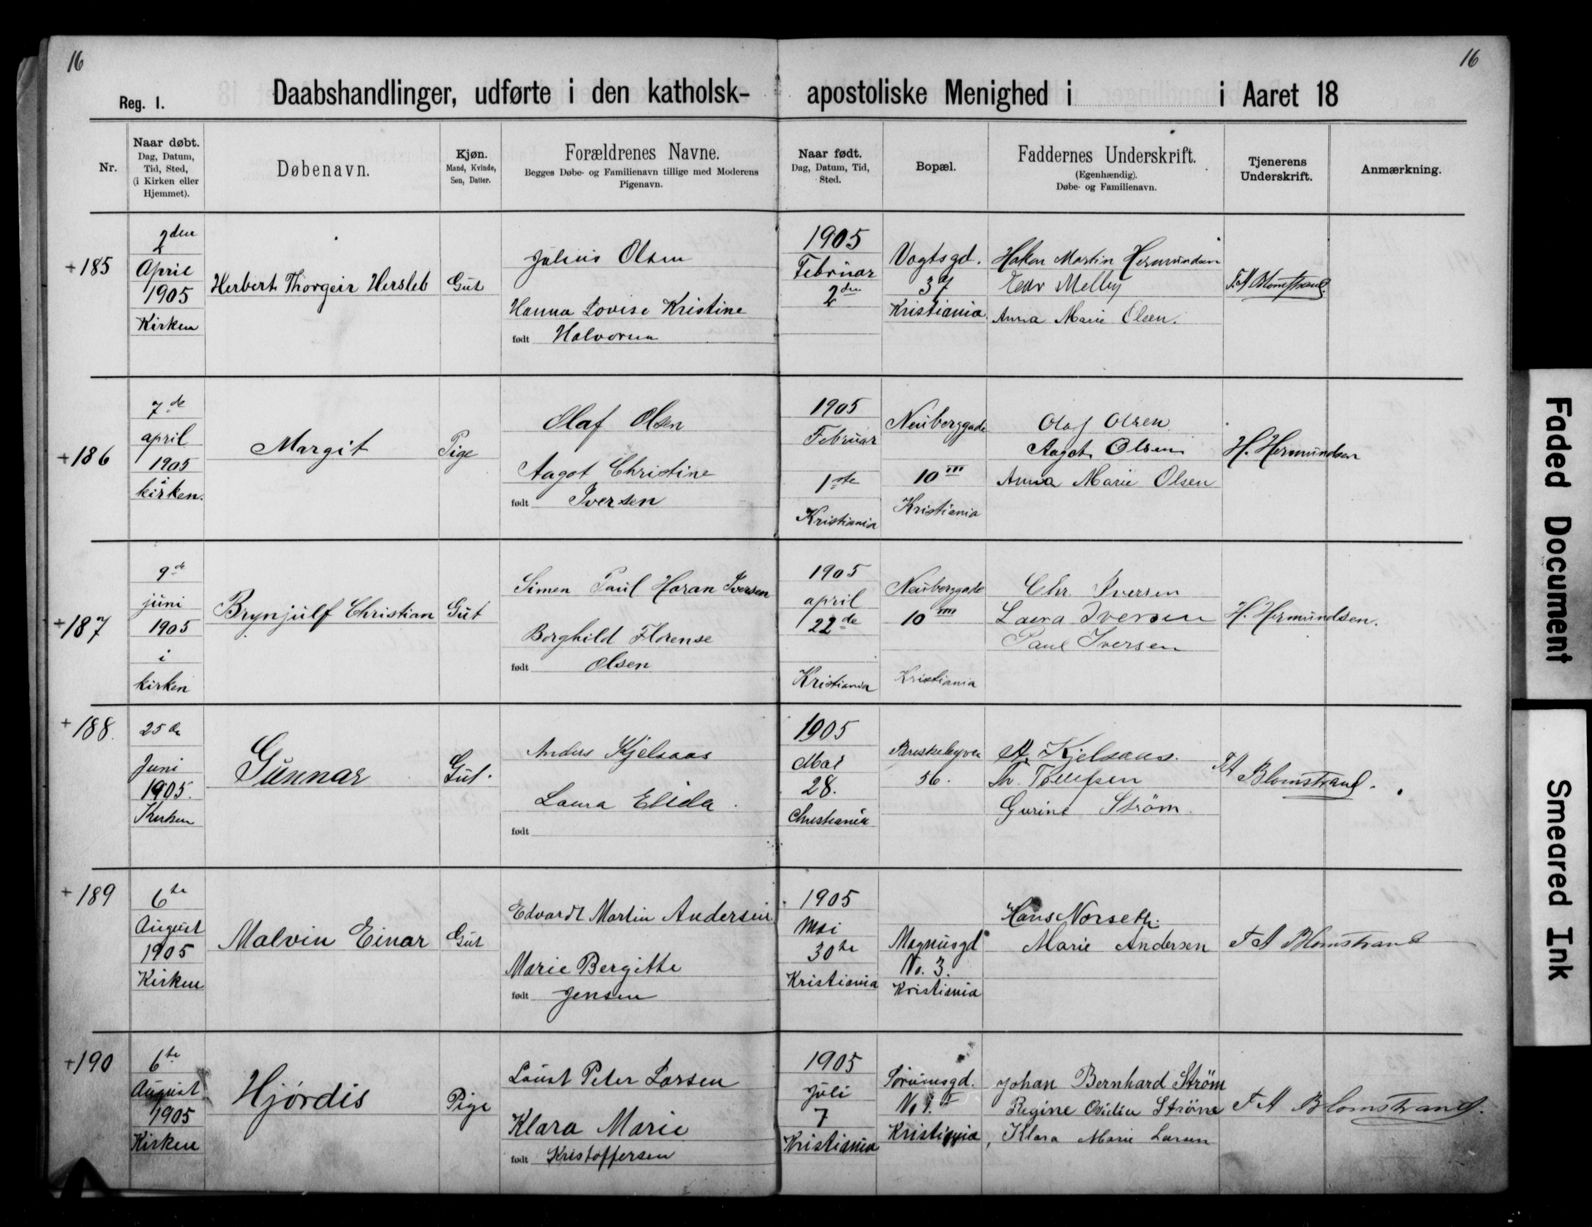 16
16
Reg. I.
Daabshandlinger, udførte i den katholsk-apostoliske Menighed i i Aaret 18
Nr.
Naar døbt.
Dag, Datum,
Tid, Sted,
(i Kirken eller
Hjemmet).
Døbenavn.
Kjøn.
Mand, Kvinde,
Søn, Datter.
Forældrenes Navne.
Begges Døbe- og Familienavn tillige med Moderens
Pigenavn.
Naar født.
Dag, Datum, Tid,
Sted.
Bopæl.
Faddernes Underskrift.
(Egenhændig).
Døbe- og Familienavn.
Tjenerens
Underskrift.
Anmærkning.
+185
2den
April
1905
Kirken
Herbert Thorgeir Hersleb
Gut
Julius Olsen
Hanna Lovise Kristine
født Halvorsen
1905
Februar
2den
Vogtsgd.
37
Kristiania
Hakon Martin Hermundsen
Edv Melby
Anna Marie Olsen.
F A Blomstrand.
+186
7de
april
1905
kirken.
Margit
Pige
Olaf Olsen
Aagot Christine
født Iversen
1905
Februar
1ste
Kristiania
Neuberggade
10
Kristiania
Olaf Olsen
Aagot Olsen
Anna Marie Olsen
H. Hermundsen
+187
9de
juni
1905
i
kirken
Brynjulf Christian
Gut
Simen Paul Haran Iversen
Borghild Florense
født Olsen
1905
april
22de
Kristiania
Neuberggade
10
Kristiania
Chr Iversen
Laura Iversen
Paul Iversen
H. Hermundsen.
+188.
25de
Juni
1905.
Kirken
Gunnar
Gut.
Anders Kjelsaas
Laura Elida.
født
1905
Mai
28.
Christiania
Briskebyven
56.
A. Kjelsaas.
Th. Tollefsen
Gurine Strøm.
F A Blomstrand.
+189
6te
August
1905
Kirken
Malvin Einar
Gut
Edvardt Martin Andersen
Marie Bergitte
født Jensen
1905
Mai
30te
Kristiania
Magnusgd
No. 3.
Kristiania
Hans Norseth.
Marie Andersen
F A Blomstrand
+190
6te
August
1905
Kirken
Hjørdis
Pige
Laust Peter Larsen
Klara Marie
født Kristoffersen
1905
Juli
7
Kristiania
Sørumsgd.
Kristiania
Johan Bernhard Strøm
Regine Strøm
Klara Marie Larsen
F A Blomstrand.
Faded Document
Smeared Ink